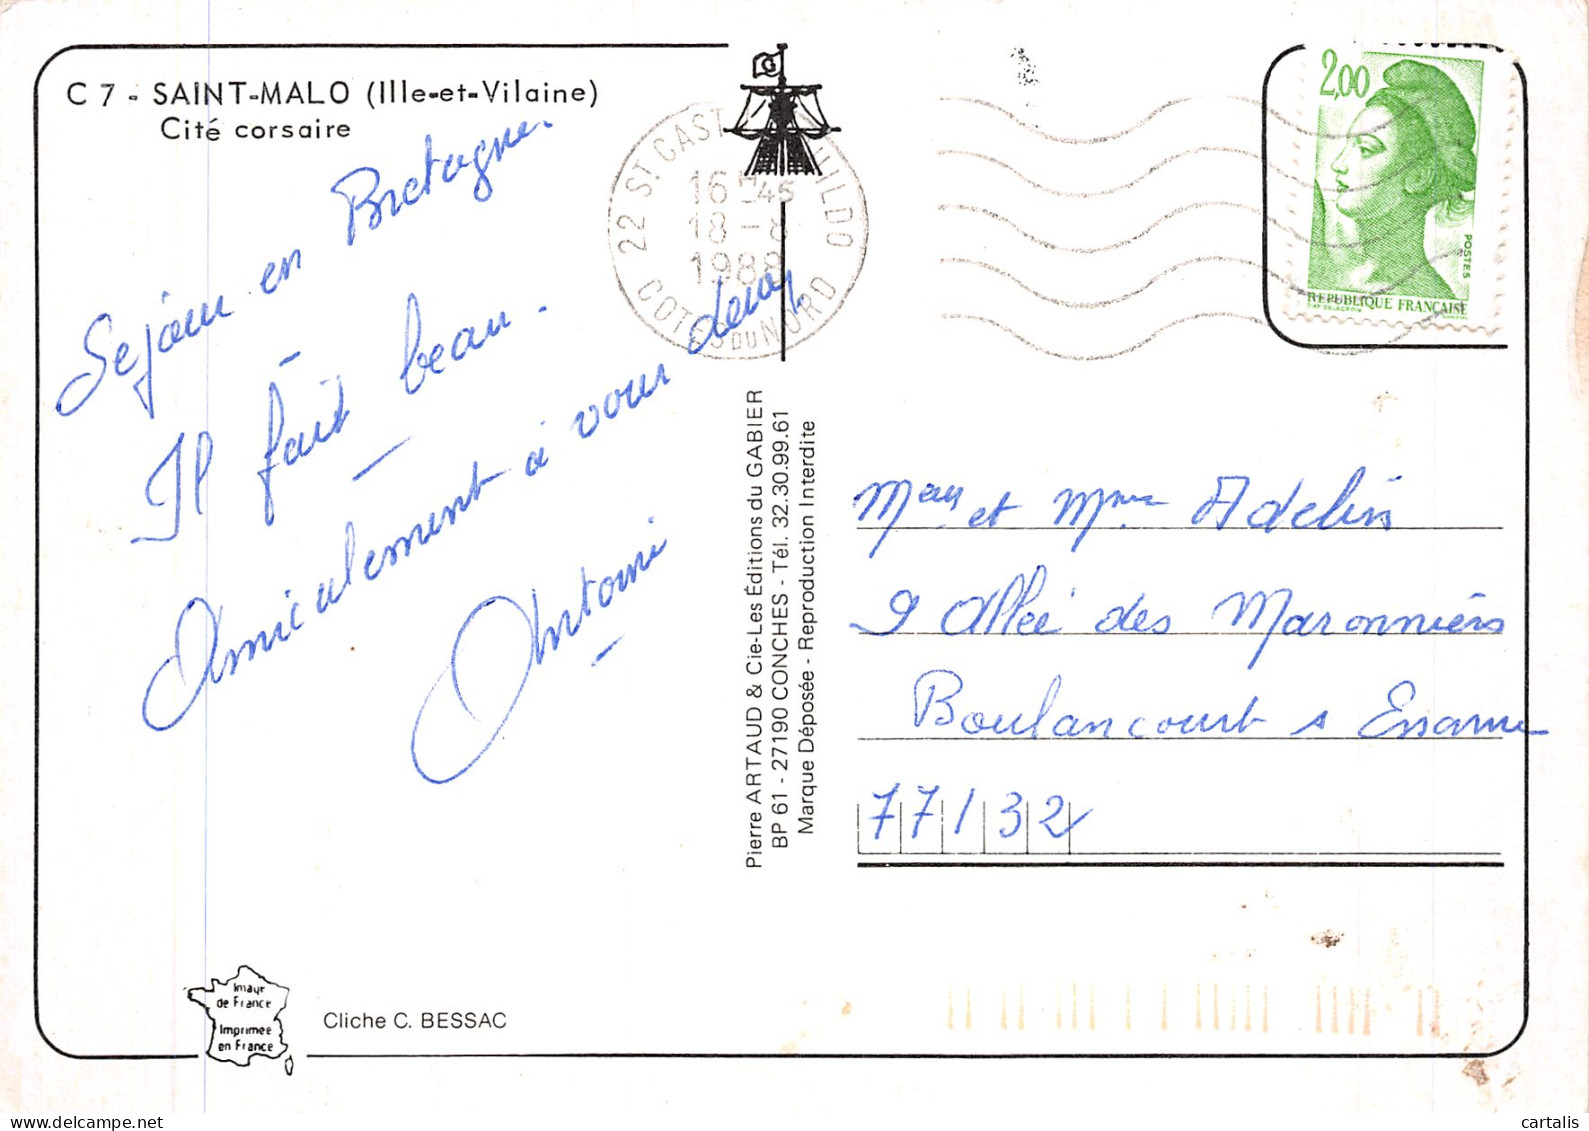 C 7 - SAINT-MALO (Ille-et-Vilaine)
Cité corsaire
Sejour en Bretagne.
Il fait beau.
Amicalement à vous deux
Antoine
22 ST. CAST
GUILDO
16H45
18-8
1988
COTES DU NORD
2,00
POSTES
REPUBLIQUE FRANÇAISE
Pierre ARTAUD & Cie-Les Éditions du GABIER
BP 61 - 27190 CONCHES - Tél. 32.30.99.61
Marque Déposée - Reproduction Interdite
et Mme Adelin
9 Allée des Maronniers
Boulancourt s Essonne
77132
Image
de France
Imprimee
en France
Cliche C. BESSAC
cartalis
delcampe.net